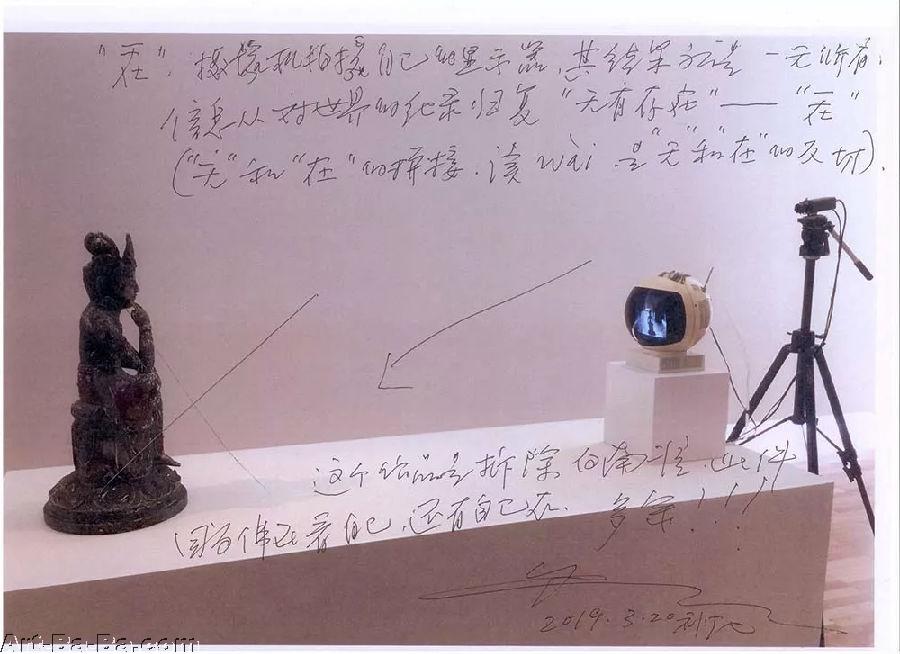 摄像机拍摄自己的显示器,其结果就是一无所有,
信息从对世界的纪录归复“无有存在”——
(“无”和“在”的拼接.读wài.是“无”和“在”的反切).
这个作品是拆除白南准此件
因为佛在看自己,还有自己在.多余!!!!
2019.3.20
Art-Ba-Ba.com